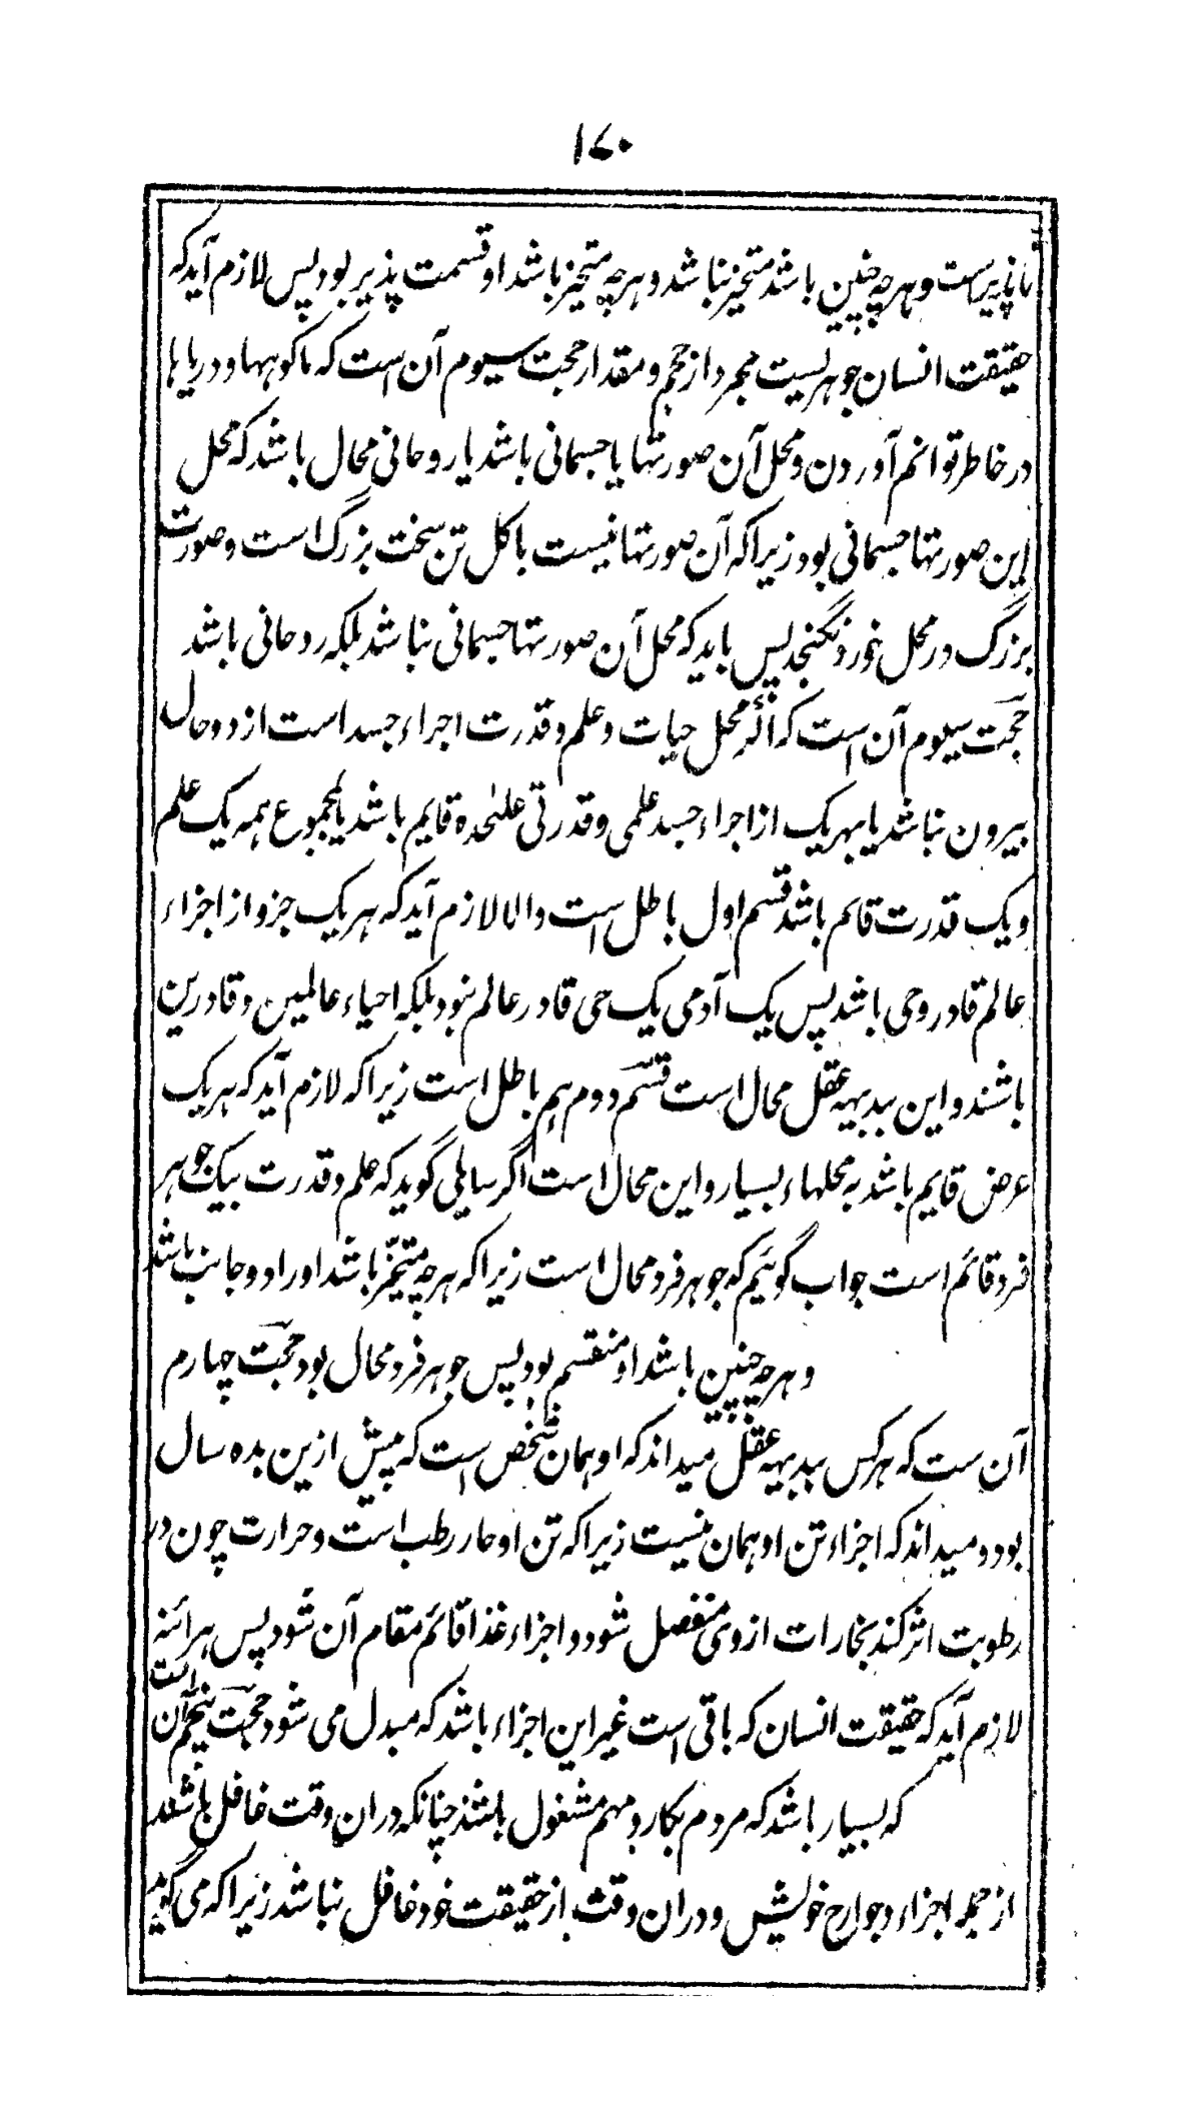 ۱۷۰
ناپذیرست و هرچه چنین باشد متحیز نباشد و هرچه متحیز باشد او قسمت پذیر بود پس لازم آید که
حقیقت انسان جوهریست مجرد از حجم و مقدار حجت سیوم آن است که ما کوهها و دریاها
در خاطر توانم آوردن و محل آن صورتها یا جسمانی باشد یا روحانی محال باشد که محل
این صورتها جسمانی بود زیرا که آن صورتها نیست با کل تن سخت بزرگ است و صورت
بزرگ در محل خورد نگنجد پس باید که محل آن صورتها جسمانی نباشد بلکه روحانی باشد
حجت سیوم آن است که اگر محل حیات و علم و قدرت اجزاء جسد است از دو حال
بیرون نباشد یا بهریک از اجزاء جسد علمی و قدرتی علیٰحده قایم باشد یا بمجموع همه یک علم
و یک قدرت قائم باشد قسم اول باطل است والا لازم آید که هر یک جزو از اجزاء
عالم قادر و حی باشد پس یک آدمی یک حی قادر عالم نبود بلکه احیاء عالمین و قادرین
باشند و این ببدیهه عقل محال است قسم دوم هم باطل است زیرا که لازم آید که هر یک
عرض قایم باشد به محلهاء بسیار و این محال است اگر سایلی گوید که علم و قدرت بیک جوهر
فرد قائم است جواب گوئیم که جوهر فرد محال است زیرا که هرچه متحیّز باشد او را دو جانب باشد
و هرچه چنین باشد او منقسم بود پس جوهر فرد محال بود حجت چهارم
آن ست که هرکس ببدیهه عقل میداند که او همان شخص است که پیش ازین بده سال
بود و میداند که اجزاء تن او همان نیست زیرا که تن او حار رطب است و حرارت چون در
رطوبت اثر کند بخارات از وی منفصل شود و اجزاء غذا قائم مقام آن شود پس هرائنه
لازم آید که حقیقت انسان که باقی است غیر این اجزاء باشد که مبدل می شود حجت پنجم آن است
که بسیار باشد که مردم بکار و مهم مشغول باشند چنانکه دران وقت غافل باشند
از جمله اجزاء و جوارح خویش و دران وقت از حقیقت خود غافل نباشد زیرا که می گوید